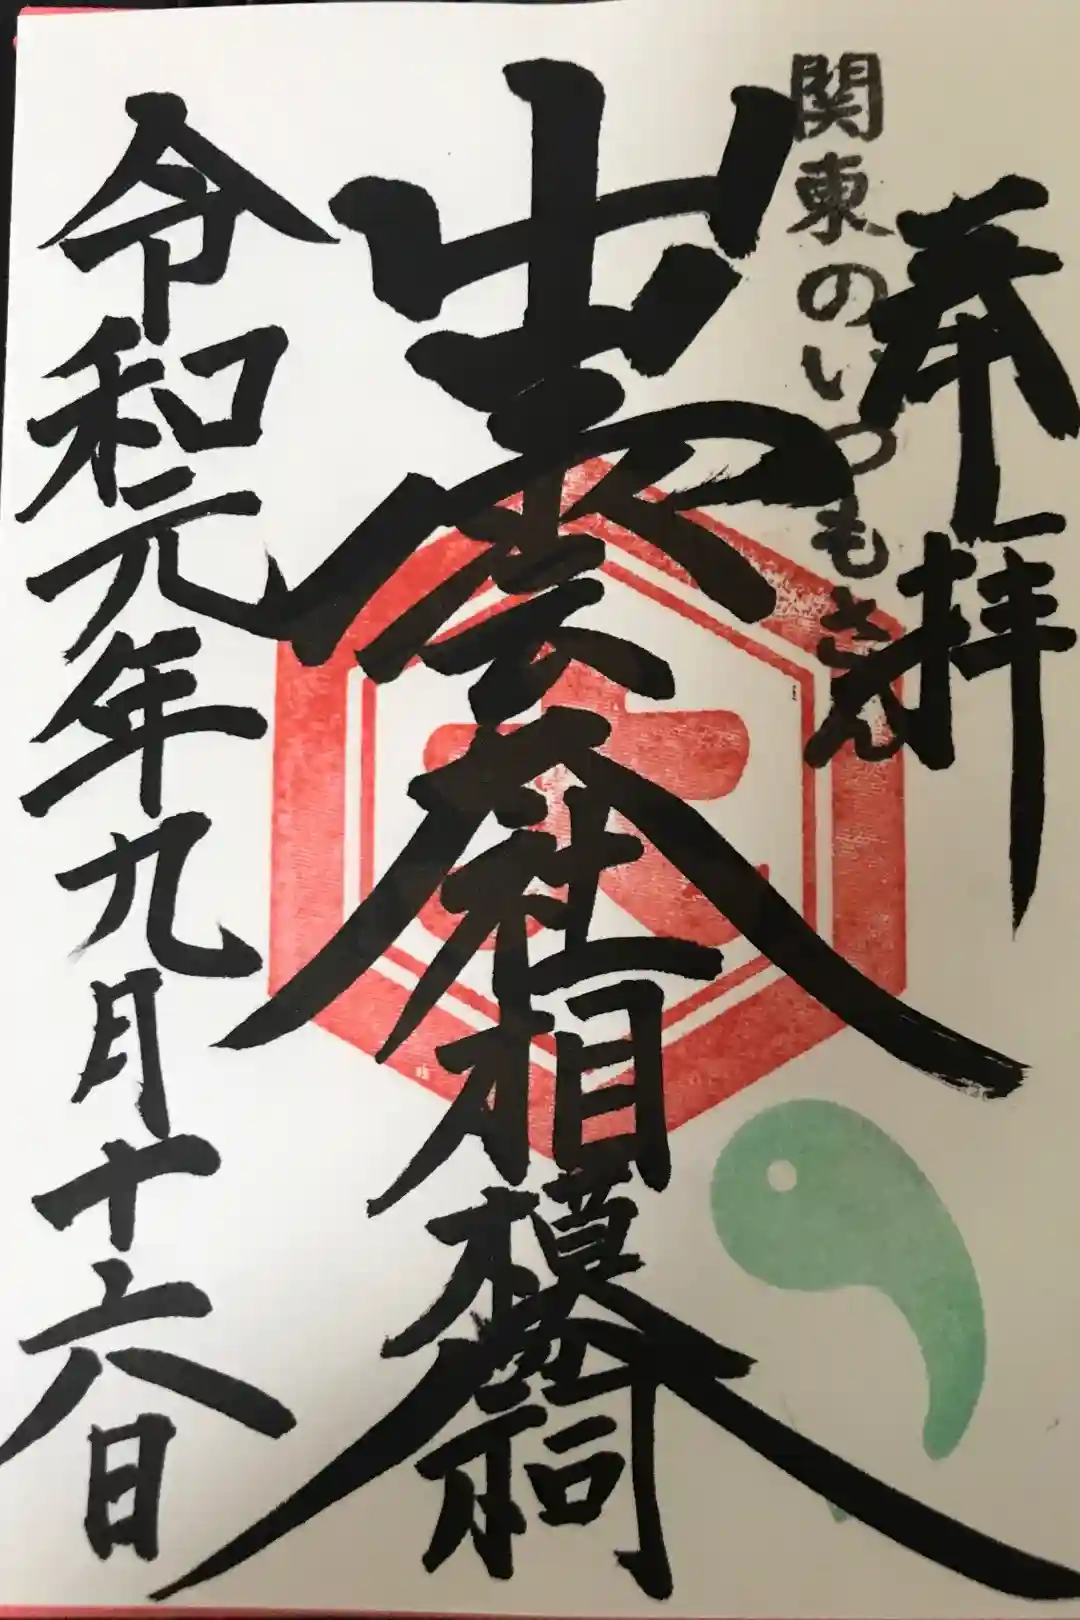 奉拝
関東のいづもさん
出雲大社相模分祠
大
令和元年九月十六日